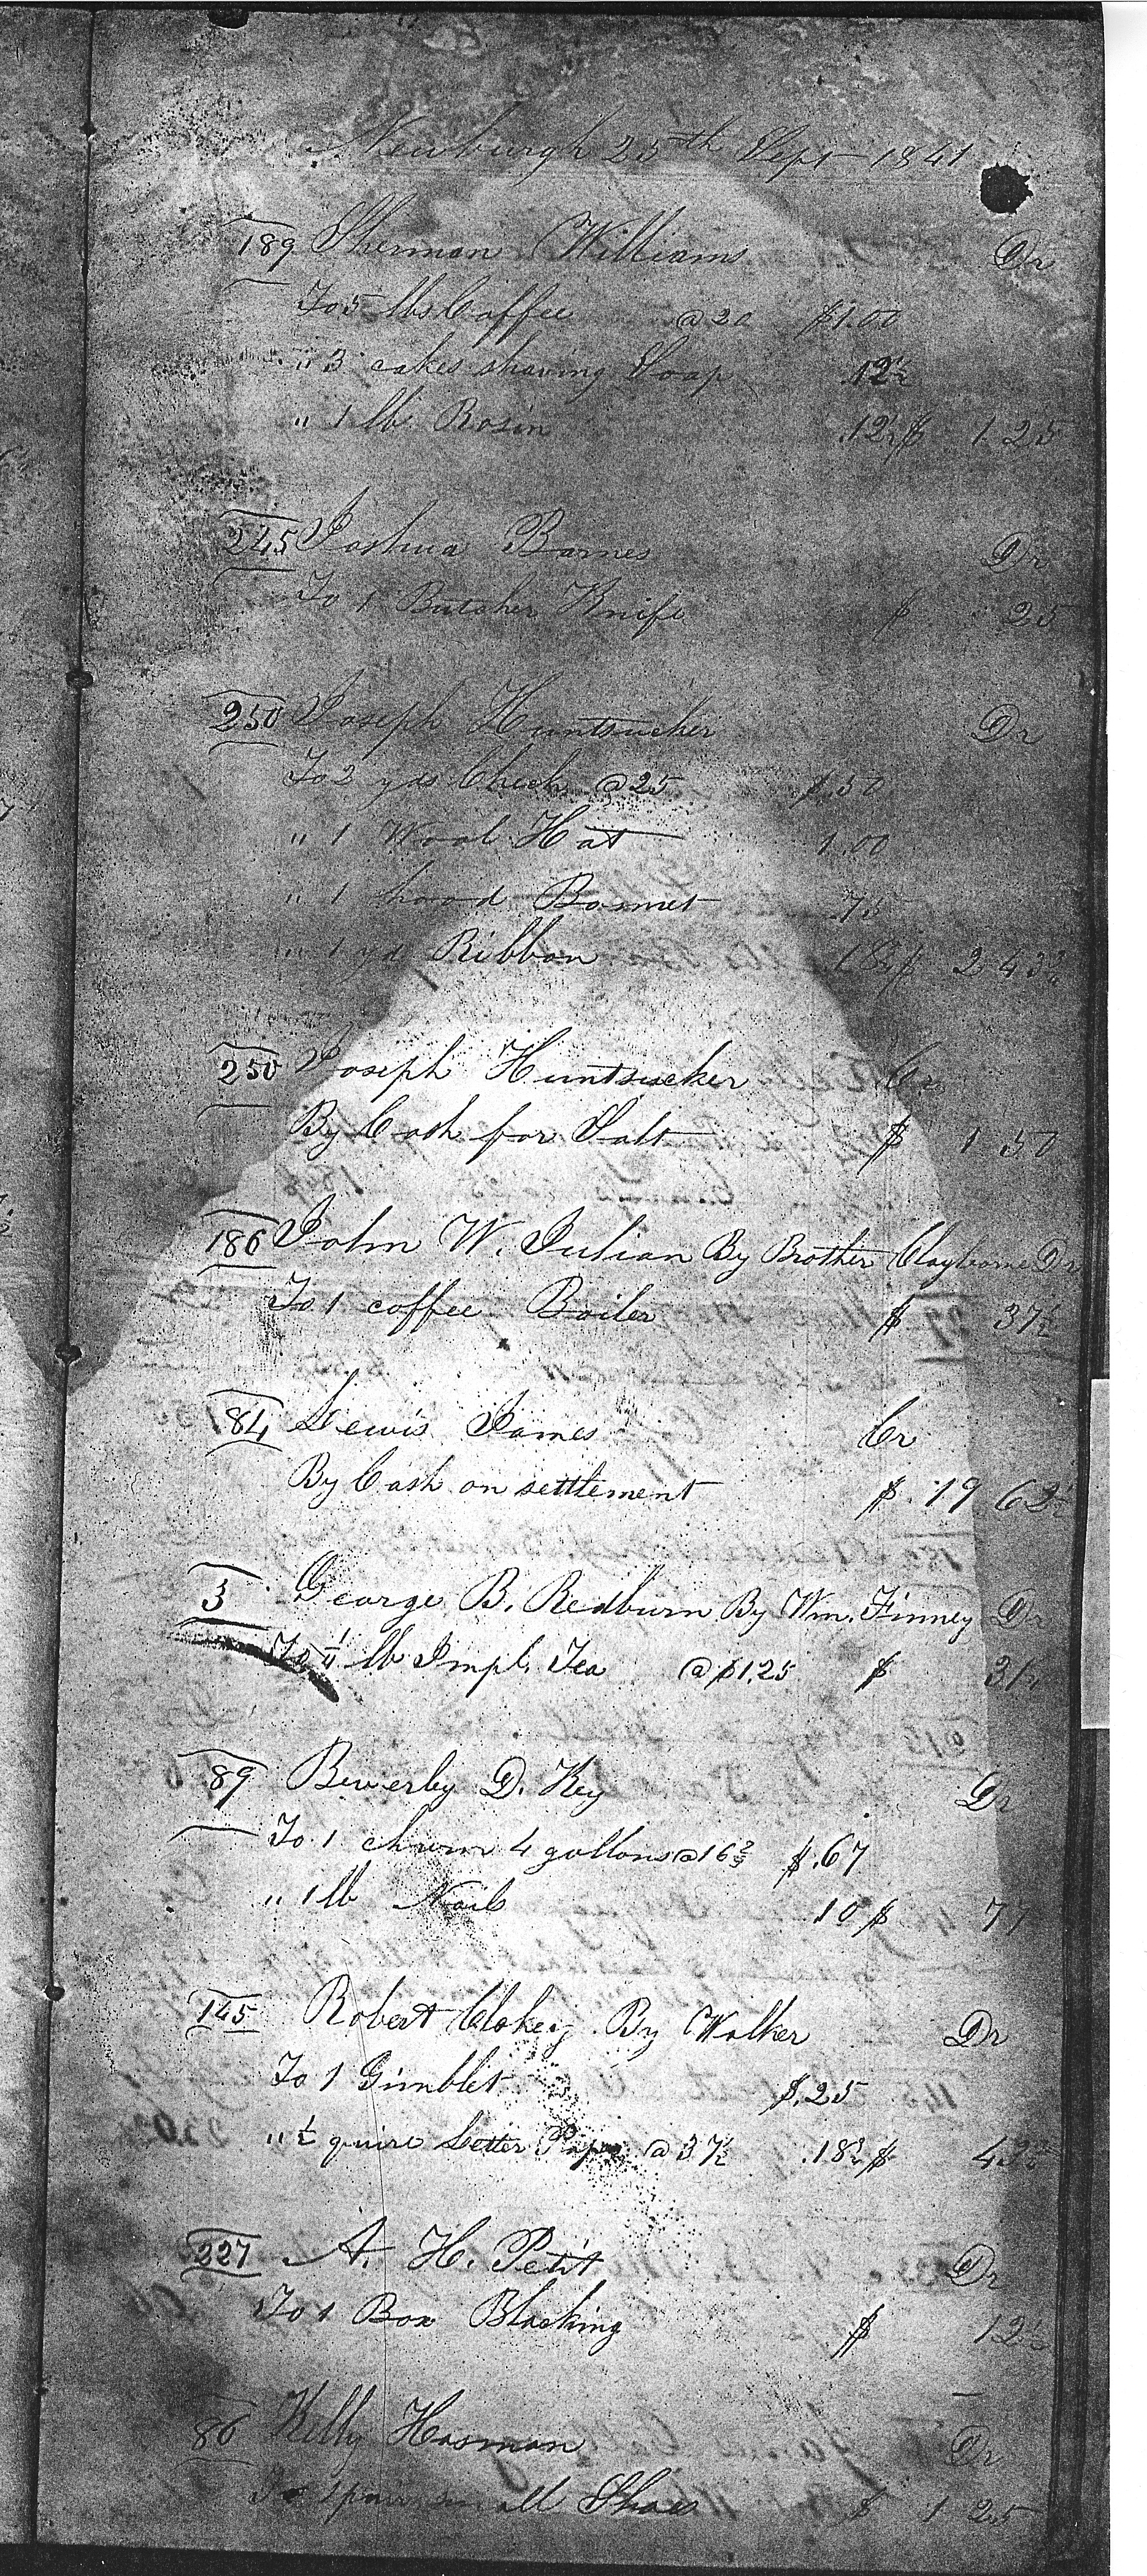 Newburgh 25th Sept 1841
189 Sherman Williams Dr
To 5 lbs Coffee @ 20 $1.00
" 3 cakes shaving Soap .12½
" 1 lb Rosin .12½ $ 1.25
245 Joshua Barnes Dr
To 1 Butcher Knife $ 25
250 Joseph Huntsucker Dr
To 2 yds Check @ 25 $.50
" 1 Wool Hat 1.00
" 1 hood Bonnet .75
" 1 yd Ribbon 18¾ $ 2 43¾
250 Joseph Huntsucker Cr
By Cash for Salt $ 1 50
186 John W. Julian By Brother Clayborne Dr
To 1 coffee Boiler $ 37½
84 Lewis James Cr
By Cash on settlement $ 19 62½
3 George B. Redburn By Wm. Finney Dr
To ¼ lb Impl. Tea @ $1.25 $ 31¼
89 Beverly D. Key Dr
To 1 churn 4 gallons @ 16⅔ $.67
" 1 lb Nails 10 $ 77
145 Robert Clokey By Walker Dr
To 1 Gimblet $.25
" ½ quire Letter Paper @ 37½ .18¾ $
227 A. H. Petit Dr
To 1 Box Blacking $ 12½
86 Kelly Hosman Dr
To 1 pair small Shoes $ 1 25